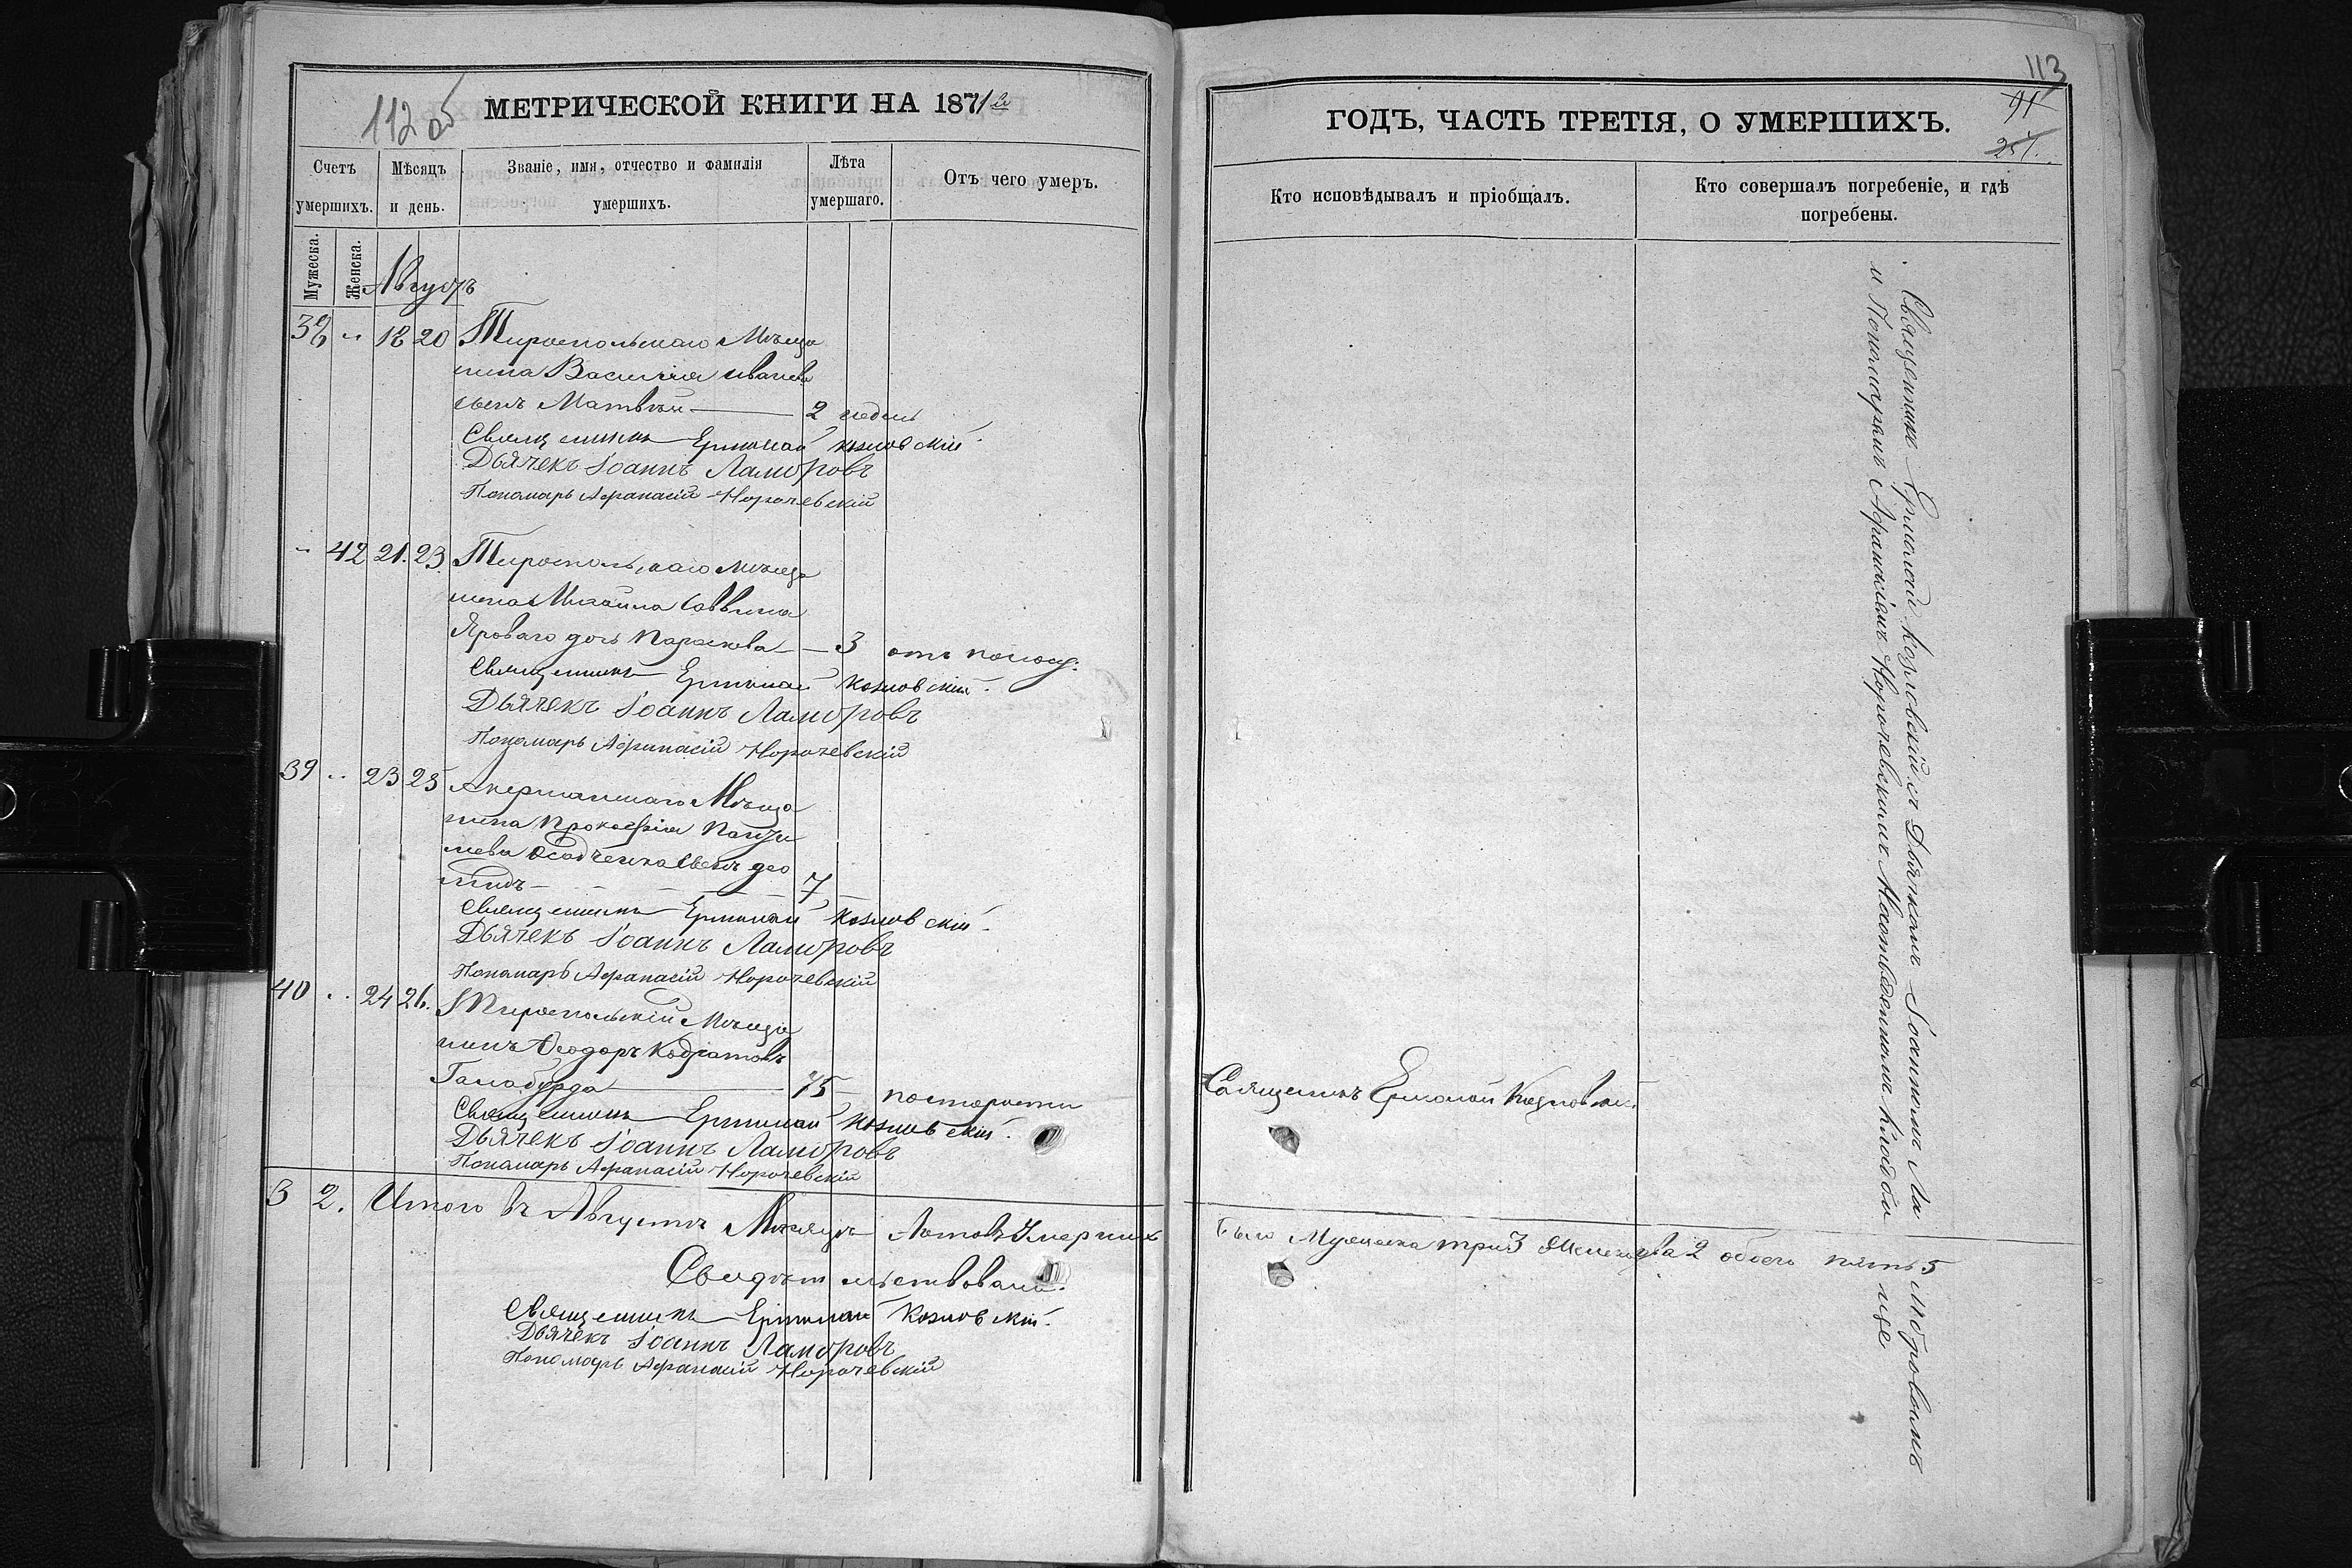 112 об
МЕТРИЧЕСКОЙ КНИГИ НА 1871й
Счетъ умершихъ.
Мѣсяцъ и день.
Званіе, имя, отчество и фамилія умершихъ.
Лѣта умершаго.
Отъ чего умеръ.
Мужеска.
Женска.
Августъ
38 " 18 20 Тираспольскаго Мѣща
нина Василія Иванова
сынъ Матвѣй — 2 недѣль
Священникъ Ермолай Козловскій
Дьячекъ Іоаннъ Ламбровъ
Пономарь Афанасій Норочевскій
" 42 21. 23. Тираспольскаго мѣща
нина Михаила Саввина
Яроваго дочь Параскева — 3 отъ
Священникъ Ермолай Козловскій.
Дьячекъ Іоаннъ Ламбровъ
Пономарь Афанасій Норочевскій
39 " 23 25 Акерманскаго Мѣща
нина Прокофія
Осадченка сынъ
7
Священникъ Ермолай Козловскій.
Дьячекъ Іоаннъ Ламбровъ
Пономарь Афанасій Норочевскій
40 " 24 26. Тираспольскій Мѣща
нинъ Ѳеодоръ Кодратовъ
Гамабурда — 75 — по старости
Священникъ Ермолай Козловскій.
Дьячекъ Іоаннъ Ламбровъ
Пономарь Афанасій Норочевскій
3 2. Итого въ Августѣ Мѣсяцѣ Умершихъ
Свидѣтельствовали.
Священникъ Ермолай Козловскій.
Дьячекъ Іоаннъ Ламбровъ
Пономарь Афанасій Норочевскій
113
91
251.
ГОДЪ, ЧАСТЬ ТРЕТІЯ, О УМЕРШИХЪ.
Кто исповѣдывалъ и пріобщалъ.
Кто совершалъ погребеніе, и гдѣ погребены.
Священникъ Ермолай Козловскій съ Дьячкомъ Іоанномъ Ламбровымъ
и Пономаремъ Афанасіемъ Норочевскимъ кладбищѣ
Священникъ Ермолай Козловскій.
было Мужеска три 3 Женска два 2 обоего пять 5